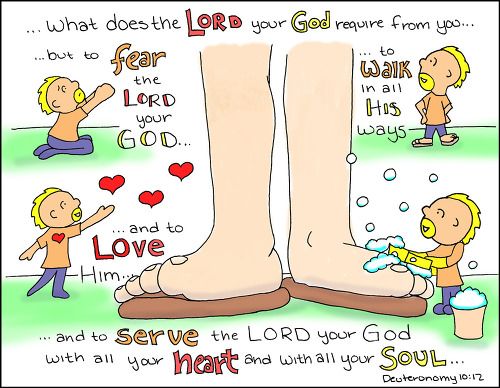 ...what does the LORD your God require from you...
...but to
fear
the
LORD
your
GOD...
...to
walk
in all
His
ways
...and to
Love
Him...
...and to serve the LORD your God
with all your heart and with all your SOUL...
Deuteronomy 10:12